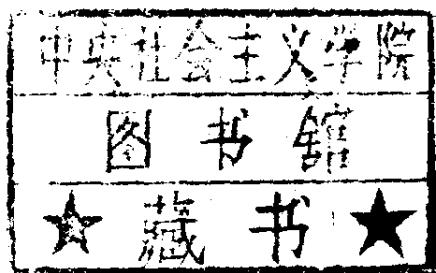 中央社会主义学院
图书舘
☆藏书★